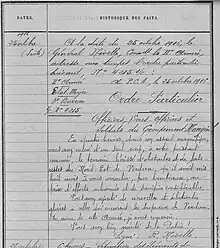 DATES. HISTORIQUE DES FAITS.
1916
Octobre A la date du 25 octobre 1916, le
(Suite) Général Nivelle, Comdt la IIe Armée,
adresse aux troupes l'ordre particulier
suivant, No 915
IIe Armée P.C.A., le 25 octobre 1916
Etat Major
3e Bureau Ordre Particulier
No 915
Officiers, Sous-Officiers et
Soldats du Groupement Mangin
En quatre heures, dans un assaut magnifique,
vous avez enlevé d'un seul coup, à votre puissant
ennemi, le terrain, hérissé d'obstacles et de forteresses
du Nord-Est de Verdun, qu'il avait mis
huit mois à vous arracher par lambeaux, au
prix d'efforts acharnés et de sacrifices considérables.
Vous avez ajouté de nouvelles et éclatantes
gloires à celles qui couvrent les drapeaux de
Au nom de cette Armée, je vous remercie.
Vous avez bien mérité de la Patrie.
Signé: Nivelle
Octobre